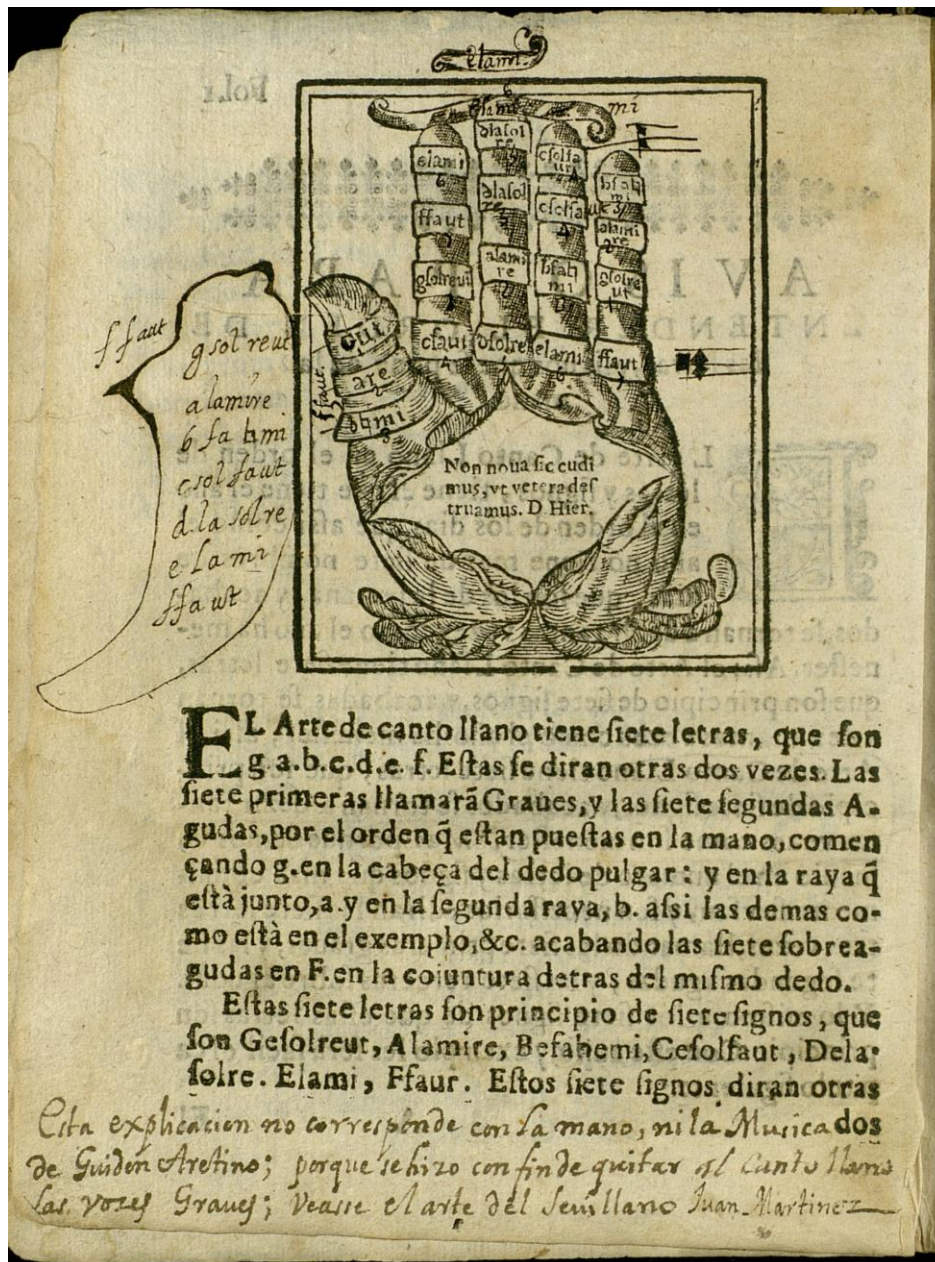 elami
elami
mi
dlasol
re
elami
6
csolfa
ut
bfab
mi
ffaut
dlasol
re
csolfa
ut
alami
re
gsolreut
alami
re
bfab
mi
gsolre
ut
cfaut
dsolre
elami
ffaut
Gut
are
bmi
ffaut
ffaut
gsolreut
alamire
b fa bmi
csolfaut
d la solre
e la mi
ffaut
Non noua sic cudi
mus, vt vetera des
truamus. D Hier.
EL Arte de canto llano tiene siete letras, que son
g a.b.c.d.e. f. Estas se diran otras dos vezes. Las
siete primeras llamarã Graues, y las siete segundas A-
gudas, por el orden q̃ estan puestas en la mano, comen
çando g. en la cabeça del dedo pulgar: y en la raya q̃
està junto, a. y en la segunda raya, b. assi las demas co-
mo està en el exemplo, &c. acabando las siete sobrea-
gudas en F. en la coiuntura detras del mismo dedo.
Estas siete letras son principio de siete signos, que
son Gesolreut, Alamire, Befabemi, Cesolfaut, Dela-
solre. Elami, Ffaur. Estos siete signos diran otras
dos
Esta explicacion no corresponde con la mano, ni la Musica
de Guidon Aretino; porque se hizo con fin de quitar al Canto llano
las vozes Graues; Vease el arte del Sevillano Juan Martinez